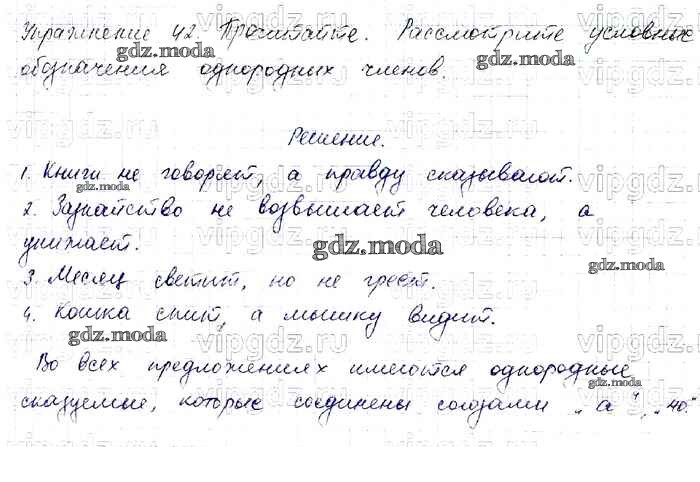 Упражнение 42. Прочитайте. Рассмотрите условные
обозначения однородных членов.
Решение.
1. Книги не говорят, а правду сказывают.
2. Зазнайство не возвышает человека, а
унижает.
3. Месяц светит, но не греет.
4. Кошка спит, а мышку видит.
Во всех предложениях имеются однородные
сказуемые, которые соединены союзами „а", „но"
gdz.moda
vipgdz.ru